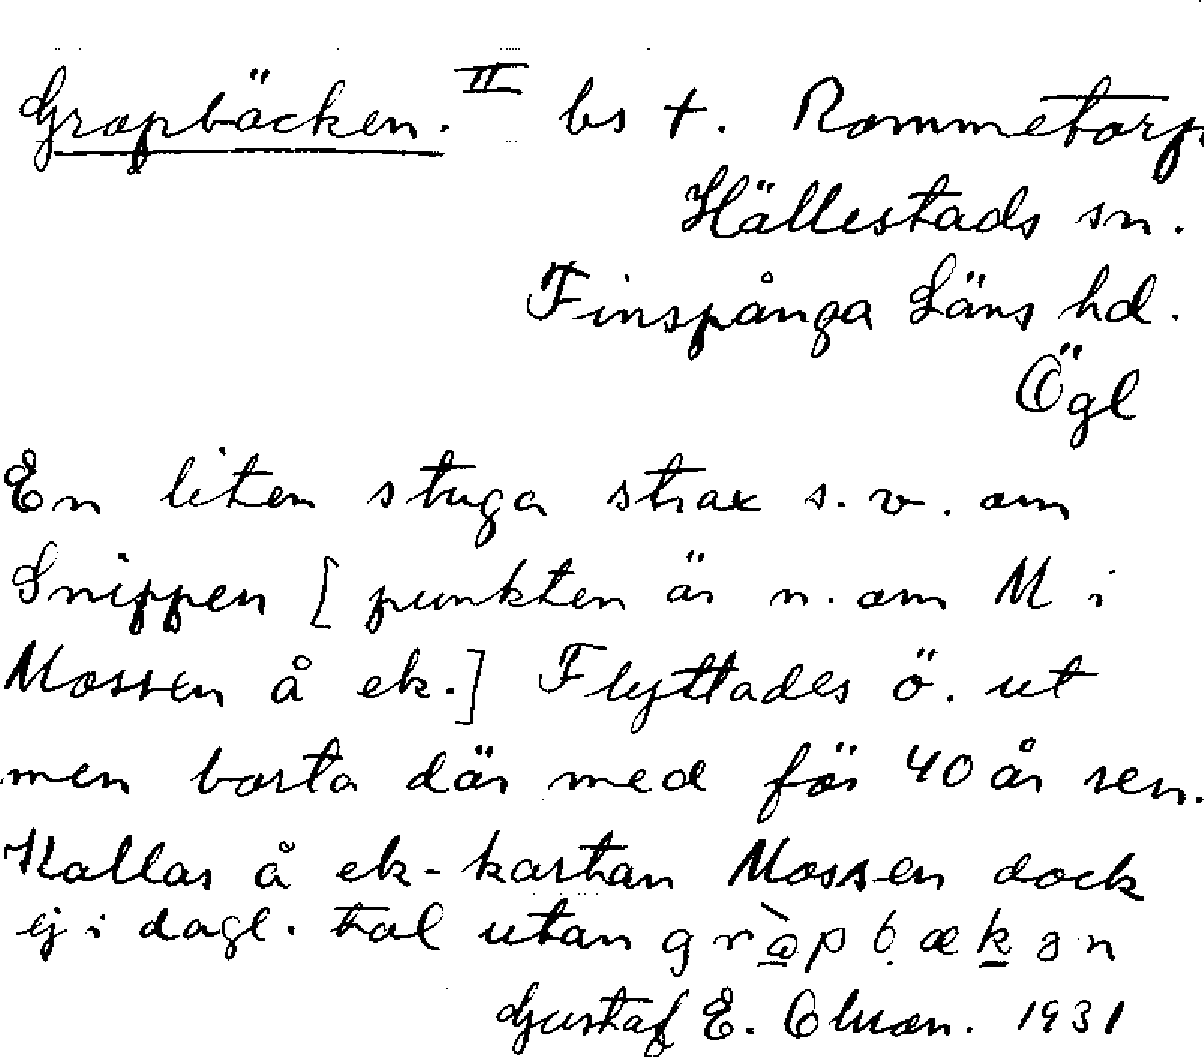 Gropbäcken. II bs t. Rommetorp
Hällestads sn.
Finspånga Läns hd.
Ögl
En liten stuga strax s.v. om
Snippen [punkten är n. om M i
Mossen å ek.] Flyttades ö. ut
men borta där med för 40 år sen.
Kallas å ek-kartan Mossen dock
ej i dagl. tal utan
Gustaf E. Olsson. 1931